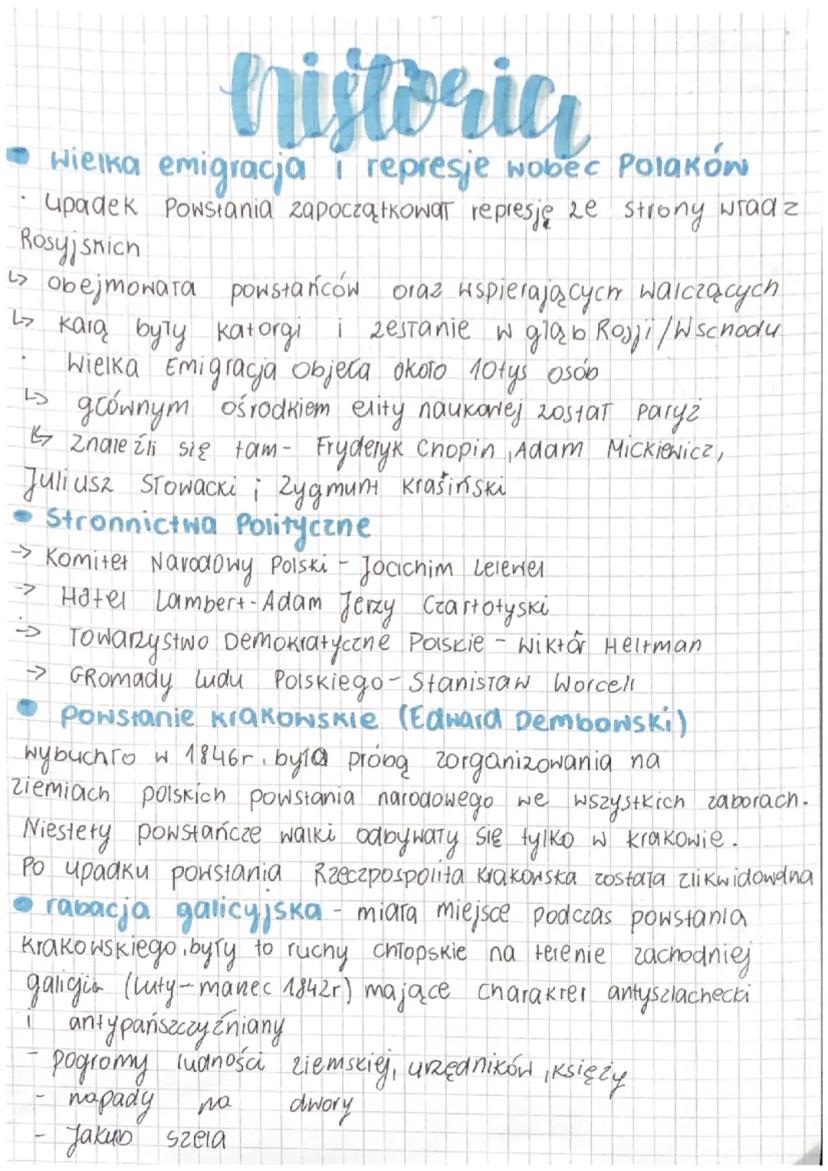 historia
• Wielka emigracja i represje wobec Polaków
· upadek Powstania zapoczątkował represję ze strony wradz
Rosyjskich
↳ obejmowała powstańców oraz wspierających walczących
↳ karą były katorgi i zesłanie w głąb Rosji/Wschodu
· Wielka Emigracja objęła około 10tys osób
↳ głównym ośrodkiem elity naukowej został Paryż
↳ Znaleźli się tam - Fryderyk Chopin, Adam Mickiewicz,
Juliusz Słowacki i Zygmunt Krasiński
• Stronnictwa Polityczne
→ Komitet Narodowy Polski - Joachim Lelewel
→ Hotel Lambert - Adam Jerzy Czartoryski
→ Towarzystwo Demokratyczne Polskie - Wiktor Heltman
→ GRomady Ludu Polskiego - Stanisław Worcell
• Powstanie krakowskie (Edward Dembowski)
wybuchło w 1846r. była próbą zorganizowania na
ziemiach polskich powstania narodowego we wszystkich zaborach.
Niestety powstańcze walki odbywały się tylko w krakowie.
Po upadku powstania Rzeczpospolita Krakowska została zlikwidowana
• rabacja galicyjska - miała miejsce podczas powstania
Krakowskiego, były to ruchy chłopskie na terenie zachodniej
galigii (luty - marzec 1842r) mające charakter antyszlachecki
i antypańszczyźniany
- pogromy ludności ziemskiej, urzędników, księży
- napady na dwory
- Jakub szela